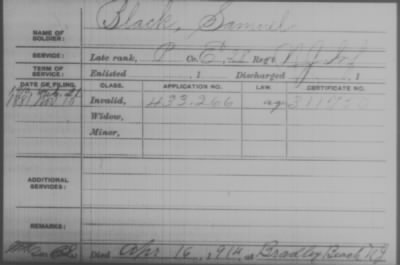 NAME OF SOLDIER: Black, Samuel
SERVICE: Late rank, P Co. E, Reg't N.J. Inf
TERM OF SERVICE: Enlisted , 1 Discharged , 1
DATE OF FILING. CLASS. APPLICATION NO. LAW. CERTIFICATE NO.
1881 Nov. Invalid, 433.266
Widow,
Minor,
ADDITIONAL SERVICES:
REMARKS:
Died Apr 16, 1914, at Bradley Beach NJ